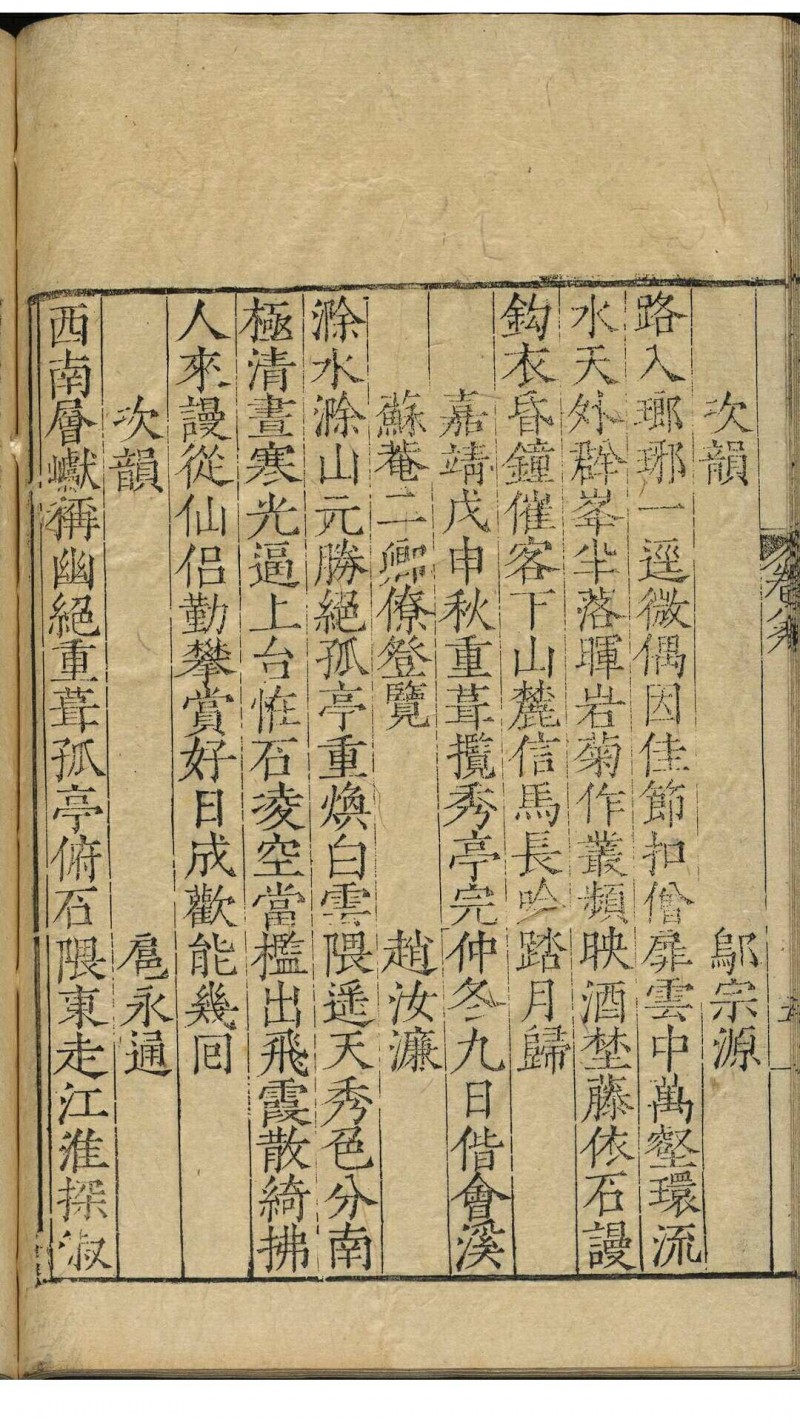 次韻 鄔宗源
路入瑯琊一逕微偶因佳節扣僧扉雲中萬壑環流
水天外群峯半落暉岩菊作叢頻映酒埜藤依石謾
鈎衣昏鐘催客下山麓信馬長吟踏月歸
嘉靖戊申秋重葺攬秀亭完仲冬九日偕會溪
蘇菴二卿僚登覽 趙汝濂
滁水滁山元勝絕孤亭重煥白雲隈遥天秀色分南
極清晝寒光逼上台恠石凌空當檻出飛霞散綺拂
人來謾從仙侣勤攀賞好日成歡能幾囘
次韻 扈永通
西南層巘稱幽絕重葺孤亭俯石隈東走江淮探淑